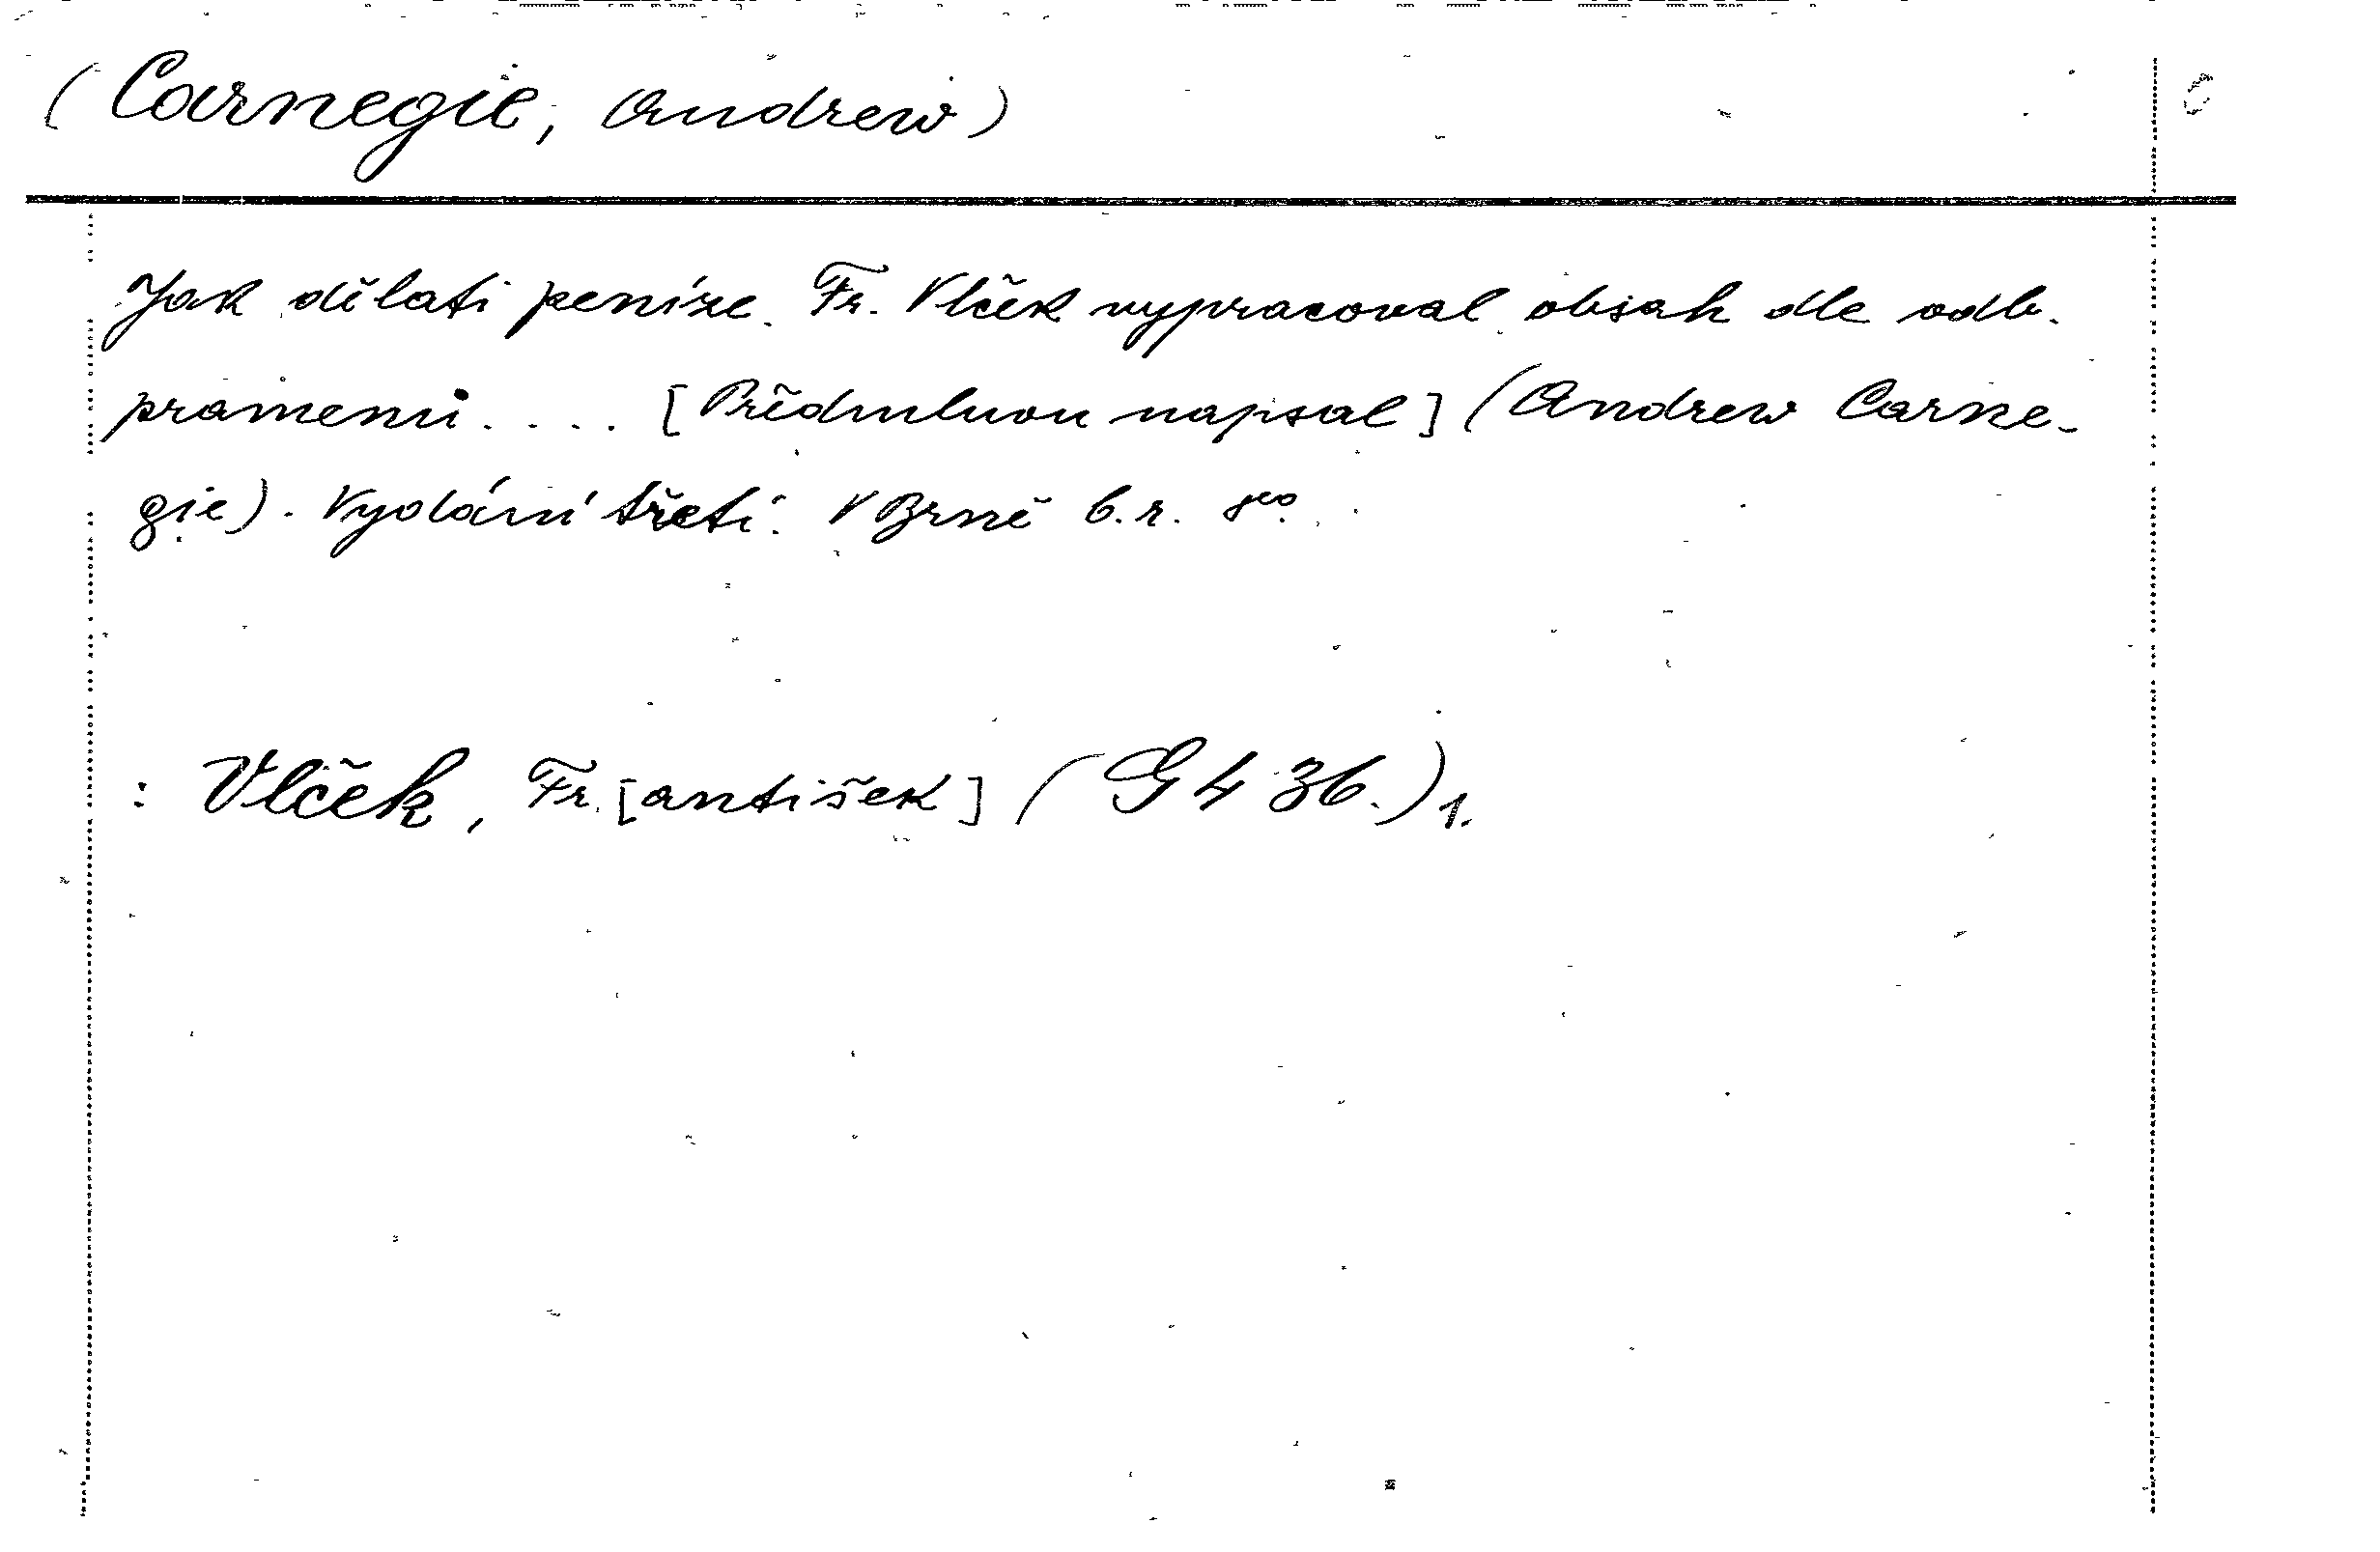 (Carnegie, Andrew)
Jak dělati peníze. Fr. Vlček vypracoval obsah dle odb.
pramenů. . . . [Předmluvou napsal] (Andrew Carne-
gie). Vydání třetí. V Brně b. r. 8°.
: Vlček, Fr.[antišek] (G 4 36.) 1.